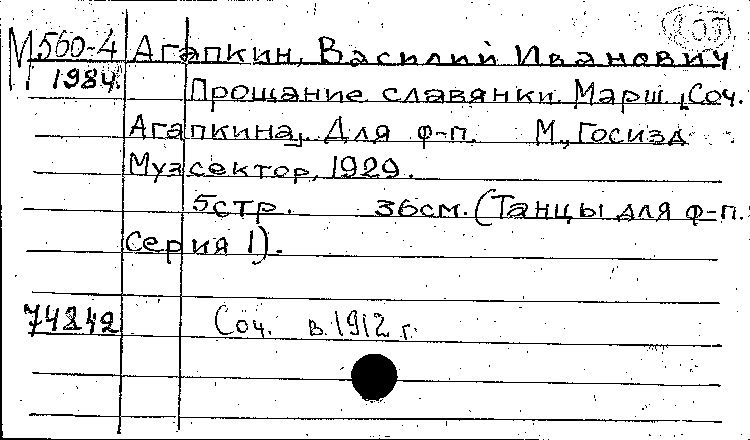 М560-4 Агапкин, Василий Иванович
1984.
Прощание славянки. Марш. Соч.
Агапкина. Для ф-п. М., Госизд
Музсектор, 1929.
5стр. 36см. (Танцы для ф-п.
Серия 1).
74242 Соч. в 1912 г.